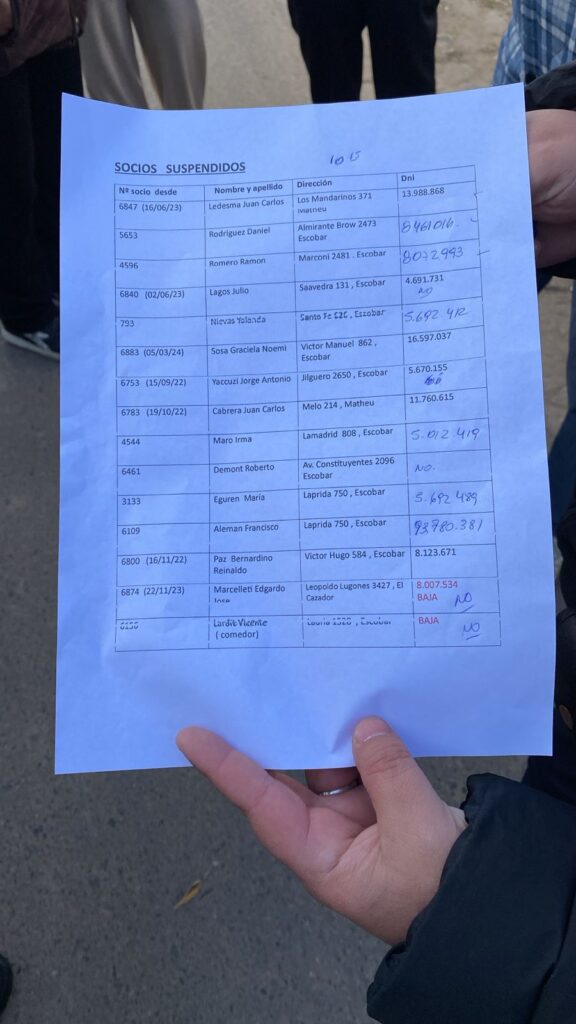 SOCIOS SUSPENDIDOS
10 15
Nº socio desde Nombre y apellido Dirección Dni
6847 (16/06/23) Ledesma Juan Carlos Los Mandarinos 371 13.988.868
Matheu
5653 Rodriguez Daniel Almirante Brow 2473 8461016.
Escobar
4596 Romero Ramon Marconi 2481 . Escobar
6840 (02/06/23) Lagos Julio Saavedra 131 , Escobar 4.691.731
NO
793 Nievas Yolanda Santo Fe 626 , Escobar 5.692.412
6883 (05/03/24) Sosa Graciela Noemi Victor Manuel 862 , 16.597.037
Escobar
6753 (15/09/22) Yaccuzi Jorge Antonio Jilguero 2650 , Escobar 5.670.155
6783 (19/10/22) Cabrera Juan Carlos Melo 214 , Matheu 11.760.615
4544 Maro Irma Lamadrid 808 , Escobar 5.012.419
6461 Demont Roberto Av. Constituyentes 2096 NO.
Escobar
3133 Eguren María Laprida 750 , Escobar 5.692.489
6109 Aleman Francisco Laprida 750 , Escobar 93.780.381
6800 (16/11/22) Paz Bernardino Victor Hugo 584 , Escobar 8.123.671
Reinaldo
6874 (22/11/23) Marcelleti Edgardo Leopoldo Lugones 3427 , El 8.007.534
Jose Cazador BAJA NO
Vicente Escobar BAJA
( comedor) NO